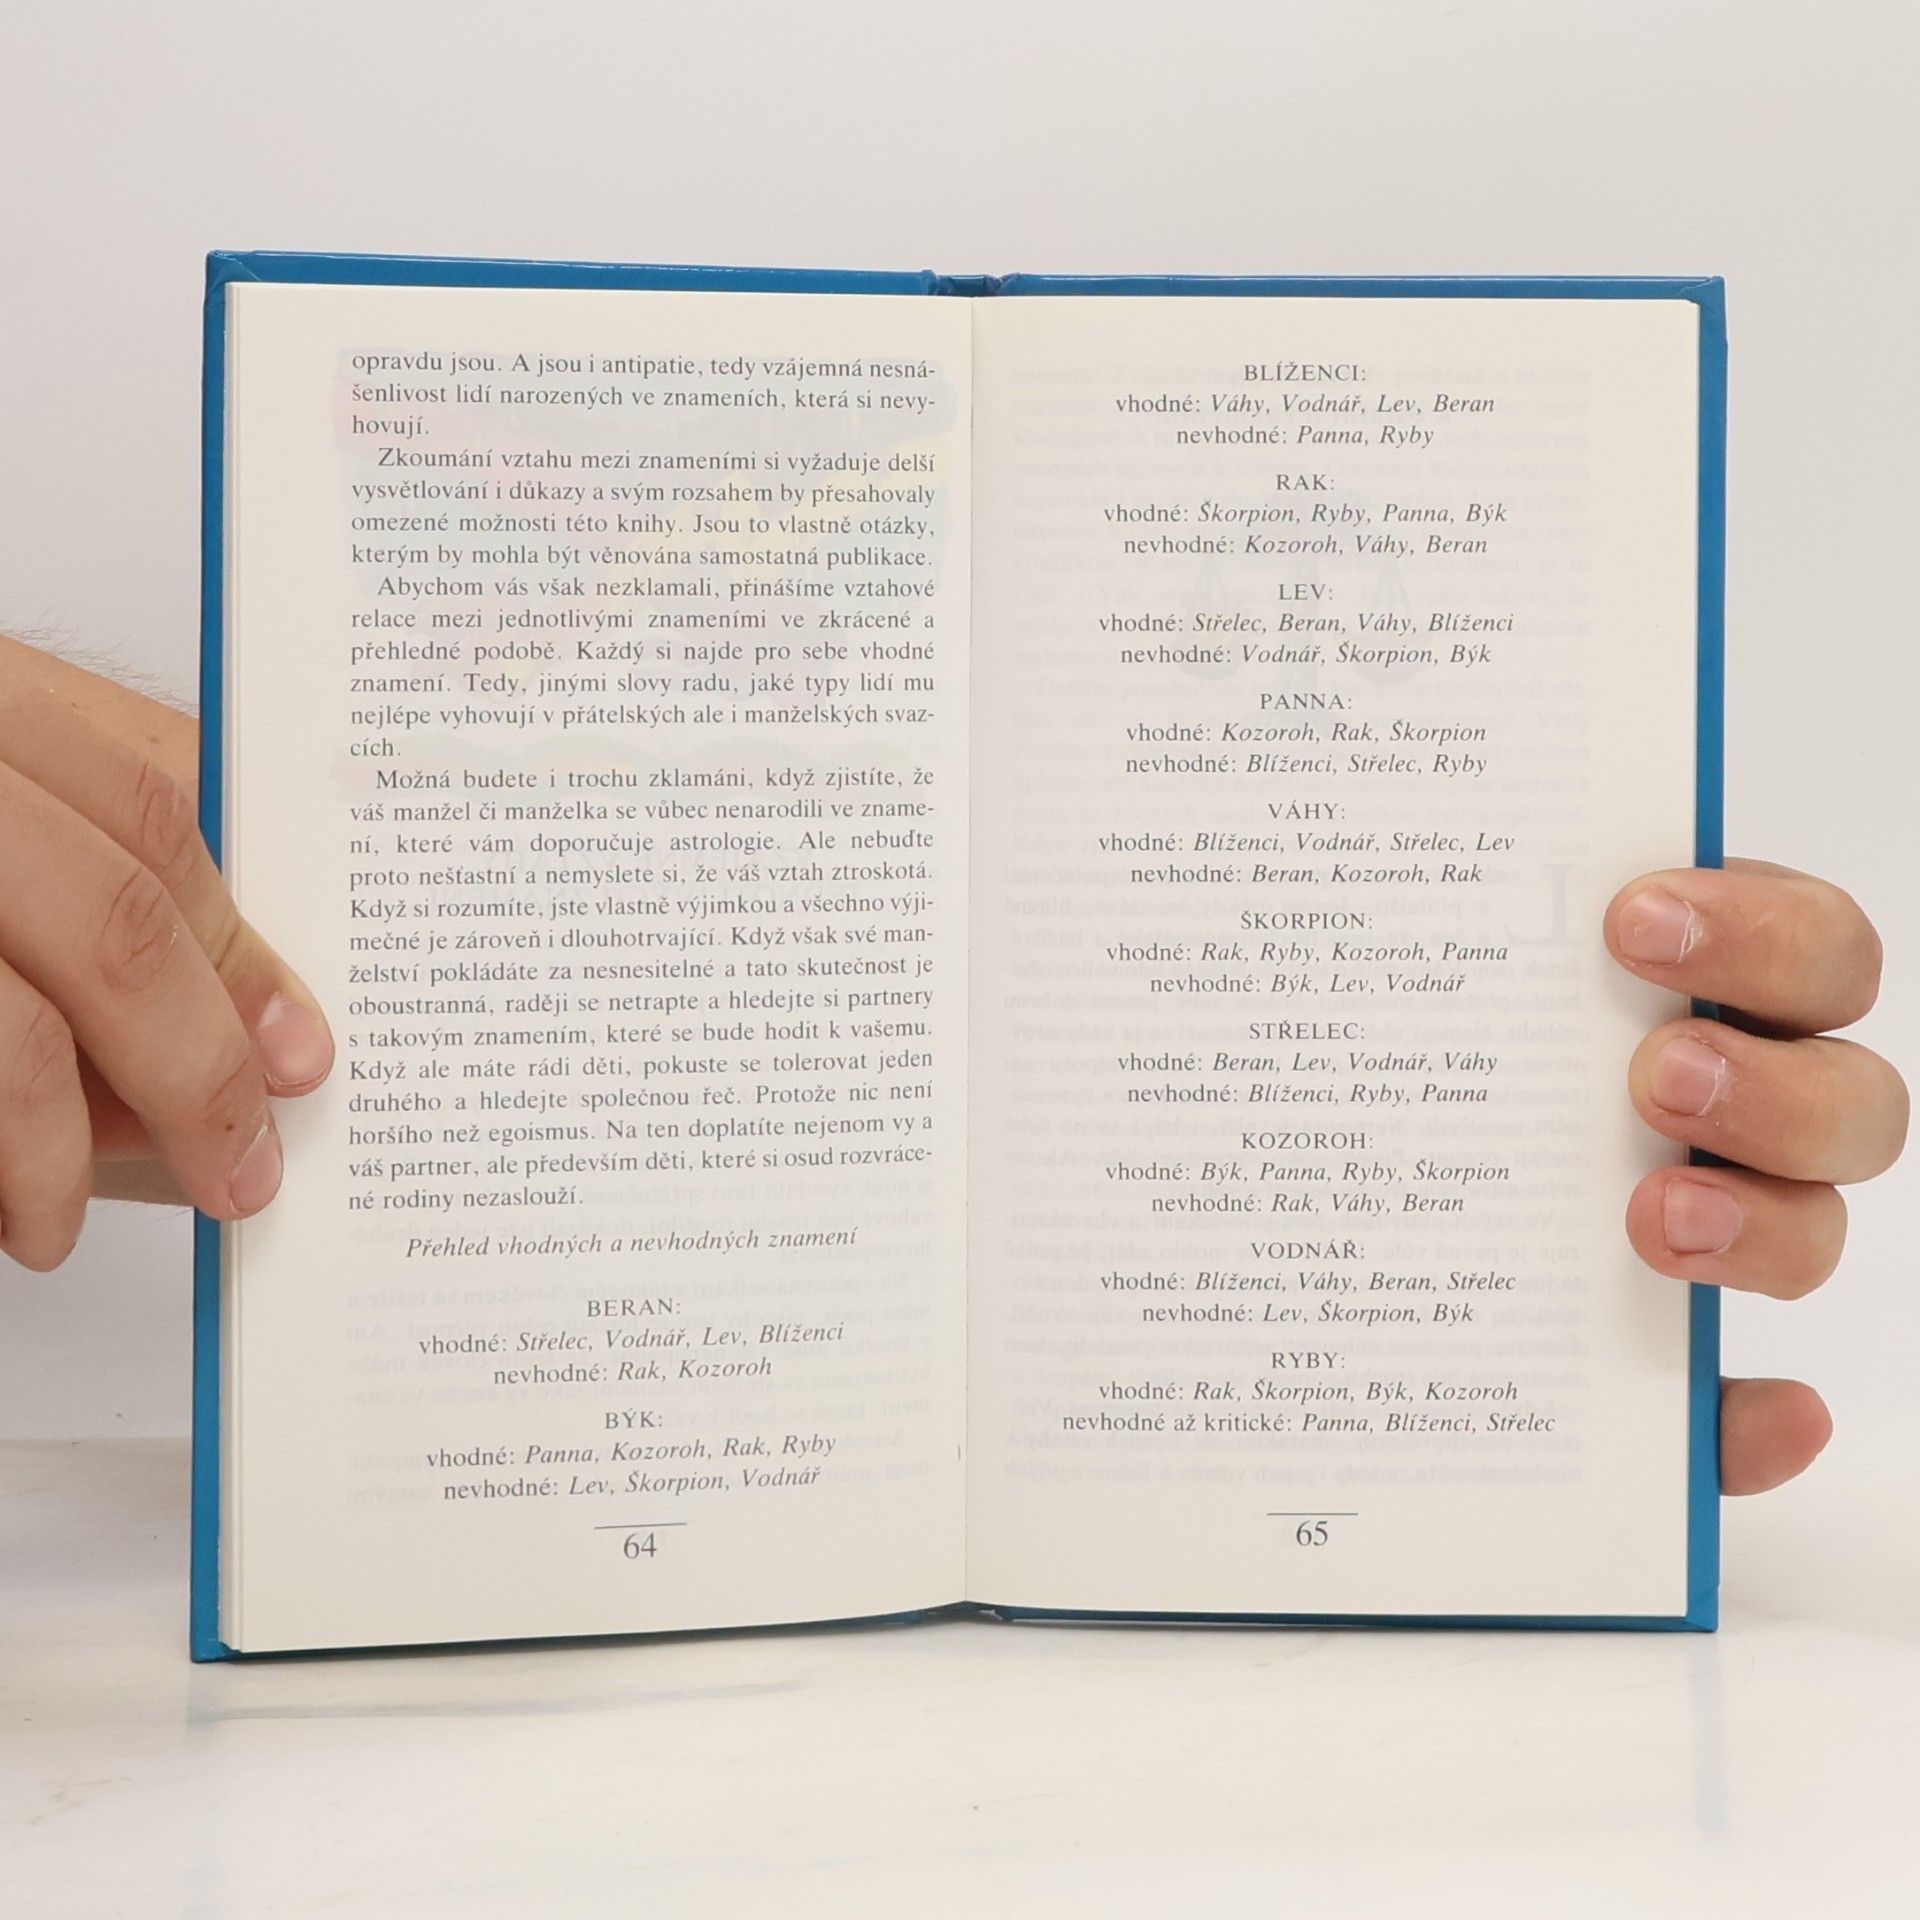 opravdu jsou. A jsou i antipatie, tedy vzájemná nesná-
šenlivost lidí narozených ve znameních, která si nevy-
hovují.
Zkoumání vztahu mezi znameními si vyžaduje delší
vysvětlování i důkazy a svým rozsahem by přesahovaly
omezené možnosti této knihy. Jsou to vlastně otázky,
kterým by mohla být věnována samostatná publikace.
Abychom vás však nezklamali, přinášíme vztahové
relace mezi jednotlivými znameními ve zkrácené a
přehledné podobě. Každý si najde pro sebe vhodné
znamení. Tedy, jinými slovy radu, jaké typy lidí mu
nejlépe vyhovují v přátelských ale i manželských svaz-
cích.
Možná budete i trochu zklamáni, když zjistíte, že
váš manžel či manželka se vůbec nenarodili ve zname-
ní, které vám doporučuje astrologie. Ale nebuďte
proto nešťastní a nemyslete si, že váš vztah ztroskotá.
Když si rozumíte, jste vlastně výjimkou a všechno výji-
mečné je zároveň i dlouhotrvající. Když však své man-
želství pokládáte za nesnesitelné a tato skutečnost je
oboustranná, raději se netrapte a hledejte si partnery
s takovým znamením, které se bude hodit k vašemu.
Když ale máte rádi děti, pokuste se tolerovat jeden
druhého a hledejte společnou řeč. Protože nic není
horšího než egoismus. Na ten doplatíte nejenom vy a
váš partner, ale především děti, které si osud rozvráce-
né rodiny nezaslouží.
Přehled vhodných a nevhodných znamení
BERAN:
vhodné: Střelec, Vodnář, Lev, Blíženci
nevhodné: Rak, Kozoroh
BÝK:
vhodné: Panna, Kozoroh, Rak, Ryby
nevhodné: Lev, Škorpion, Vodnář
64
BLÍŽENCI:
vhodné: Váhy, Vodnář, Lev, Beran
nevhodné: Panna, Ryby
RAK:
vhodné: Škorpion, Ryby, Panna, Býk
nevhodné: Kozoroh, Váhy, Beran
LEV:
vhodné: Střelec, Beran, Váhy, Blíženci
nevhodné: Vodnář, Škorpion, Býk
PANNA:
vhodné: Kozoroh, Rak, Škorpion
nevhodné: Blíženci, Střelec, Ryby
VÁHY:
vhodné: Blíženci, Vodnář, Střelec, Lev
nevhodné: Beran, Kozoroh, Rak
ŠKORPION:
vhodné: Rak, Ryby, Kozoroh, Panna
nevhodné: Býk, Lev, Vodnář
STŘELEC:
vhodné: Beran, Lev, Vodnář, Váhy
nevhodné: Blíženci, Ryby, Panna
KOZOROH:
vhodné: Býk, Panna, Ryby, Škorpion
nevhodné: Rak, Váhy, Beran
VODNÁŘ:
vhodné: Blíženci, Váhy, Beran, Střelec
nevhodné: Lev, Škorpion, Býk
RYBY:
vhodné: Rak, Škorpion, Býk, Kozoroh
nevhodné až kritické: Panna, Blíženci, Střelec
65